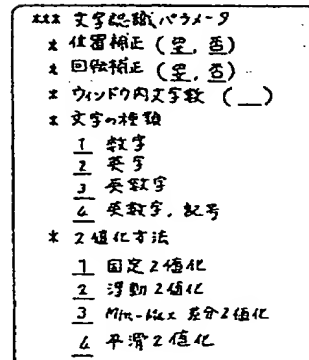 *** 文字認識パラメータ
* 位置補正 (要, 否)
* 回転補正 (要, 否)
* ウィンドウ内文字数 (__)
* 文字の種類
1 数字
2 英字
3 英数字
4 英数字, 記号
* 2値化方法
1 固定2値化
2 浮動2値化
3 Min-Max 差分2値化
4 平滑2値化